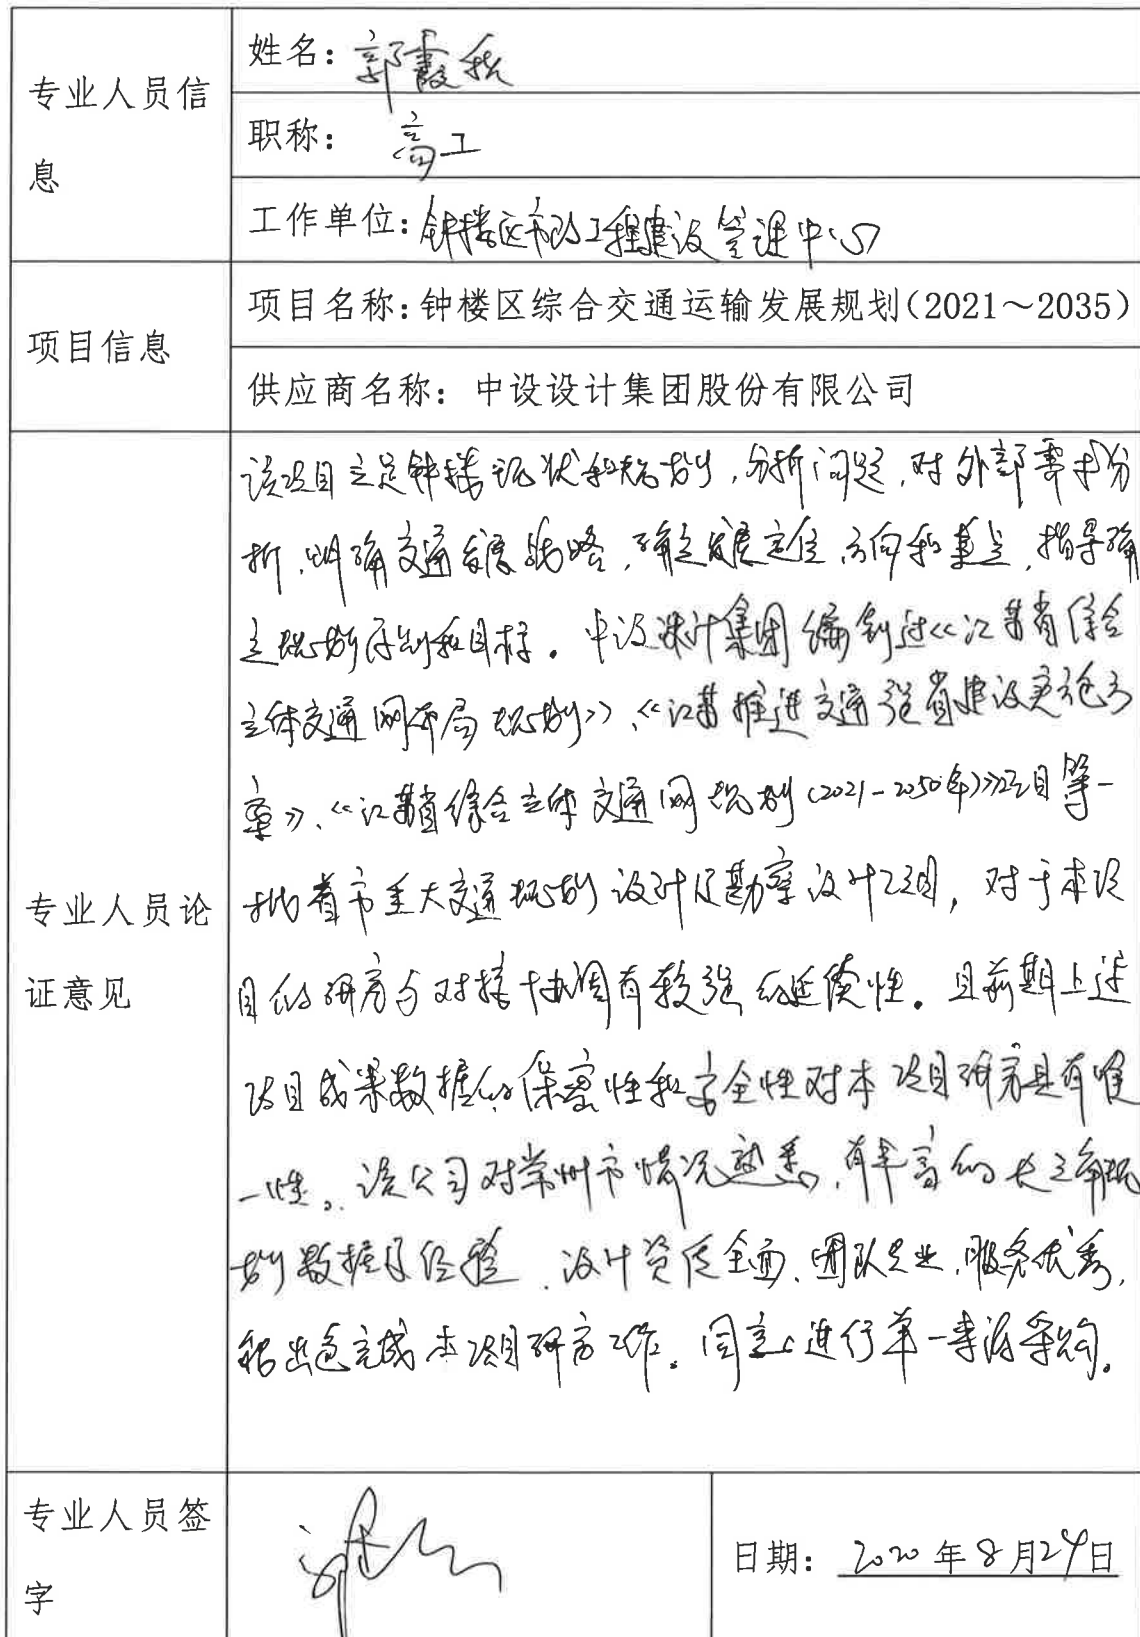 专业人员信息
姓名：郭霞
职称：高工
工作单位：钟楼区市政工程建设管理中心
项目信息
项目名称：钟楼区综合交通运输发展规划（2021～2035）
供应商名称：中设设计集团股份有限公司
专业人员论证意见
该项目立足钟楼现状和规划，分析问题，对外部需求分
析，明确交通发展战略，确定发展定位、方向和重点，指导确
定规划原则和目标。中设设计集团编制过《江苏省综合
立体交通网布局规划》、《江苏推进交通强省建设实施方
案》、《江苏省综合立体交通网规划（2021-2050年）》项目等一
批省市重大交通规划设计及勘察设计项目，对于本项
目的研究与对接协调有较强的延续性。且前期上述
项目成果数据的保密性和安全性对本项目研究具有唯
一性。该公司对常州市情况熟悉，有丰富的大交通规
划数据及经验，设计资质全面、团队专业，服务优秀，
能出色完成本项目研究工作。同意进行单一来源采购。
专业人员签字
日期：2020年8月24日